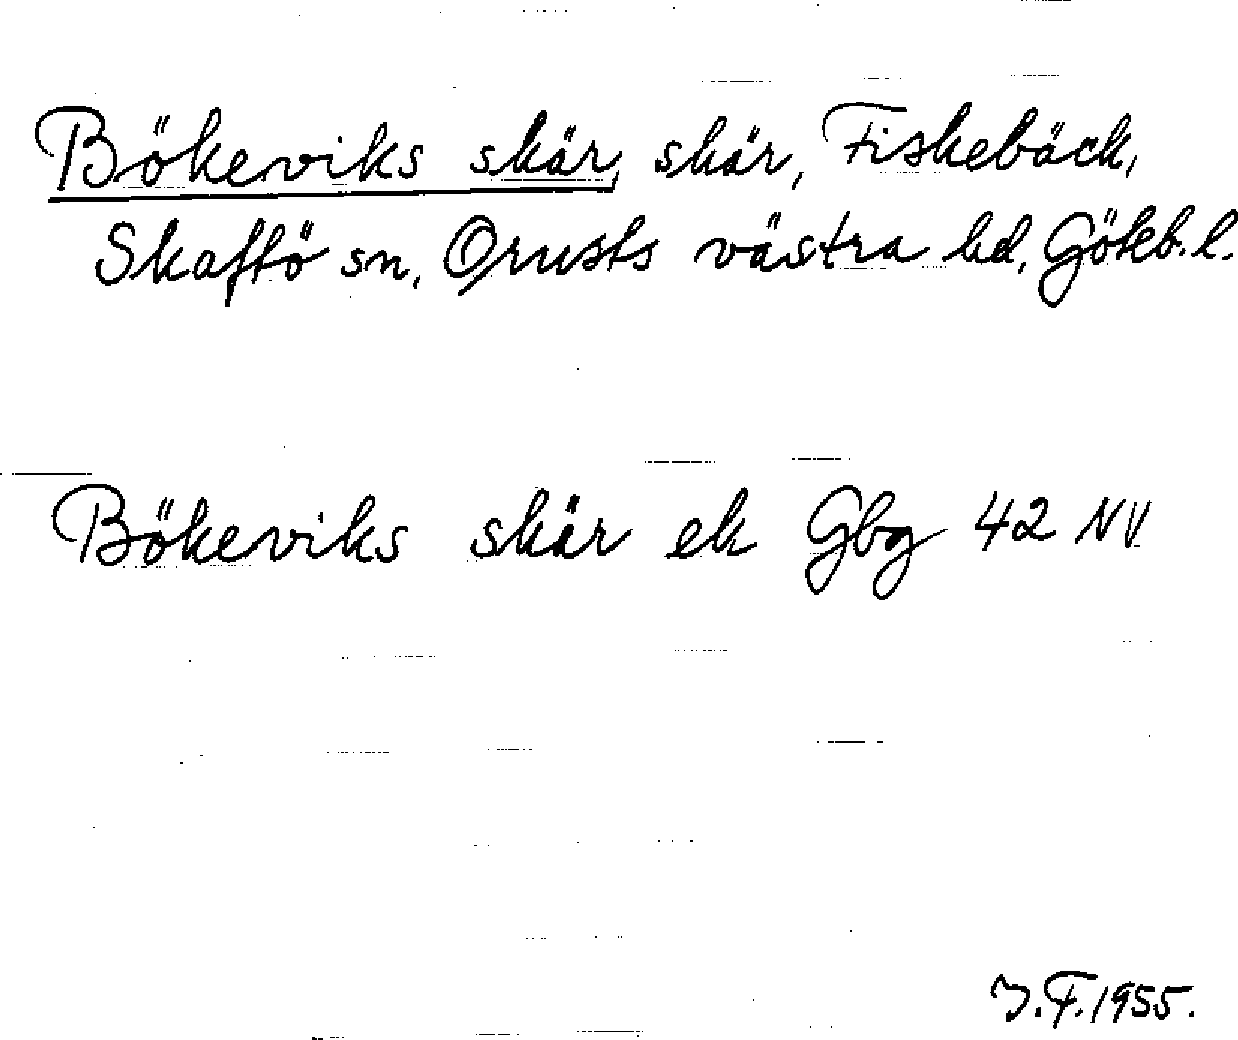 Bökeviks skär, skär, Fiskebäck,
Skaftö sn, Orusts västra hd, Göteb. l.
Bökeviks skär ek Gbg 42 NV
J.F. 1955.